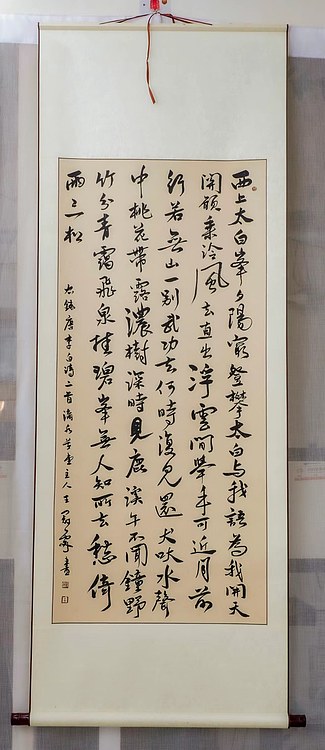 西上太白峯夕陽窮登攀太白与我語為我開天
關願乘泠風去直出浮雲間舉手可近月前
行若無山一別武功去何時復見還犬吠水聲
中桃花帶露濃樹深時見鹿溪午不聞鐘野
竹分青靄飛泉挂碧峯無人知所去愁倚
兩三松
錄唐李白詩二首 主人王 書